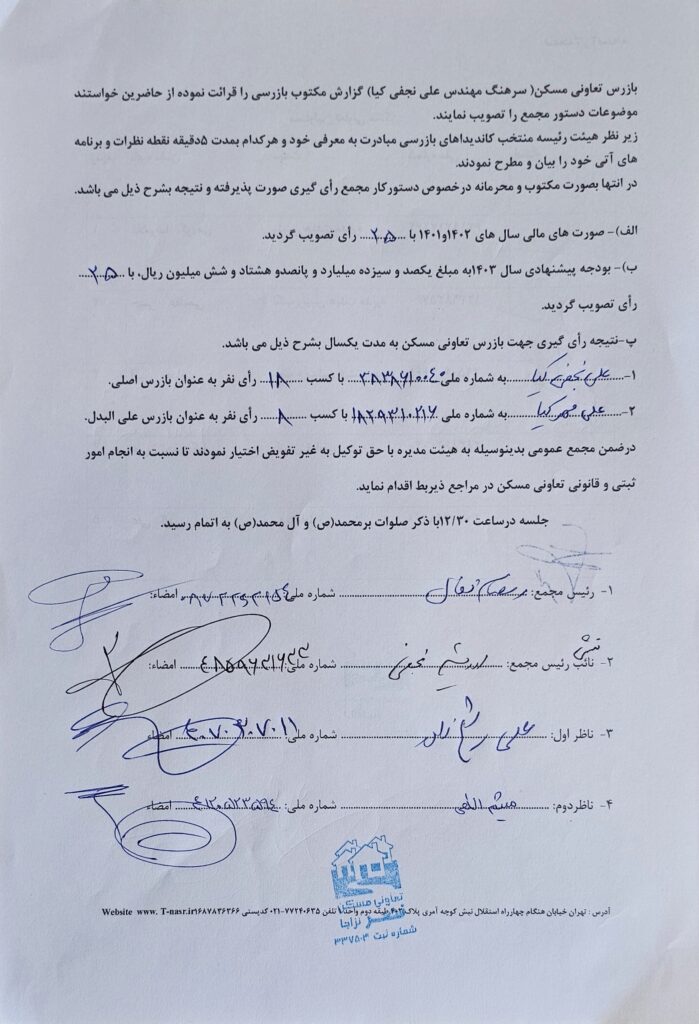 بازرس تعاونی مسکن( سرهنگ مهندس علی نجفی کیا) گزارش مکتوب بازرسی را قرائت نموده از حاضرین خواستند
موضوعات دستور مجمع را تصویب نمایند.
زیر نظر هیئت رئیسه منتخب کاندیداهای بازرسی مبادرت به معرفی خود و هرکدام بمدت ۵دقیقه نقطه نظرات و برنامه
های آتی خود را بیان و مطرح نمودند.
در انتها بصورت مکتوب و محرمانه درخصوص دستورکار مجمع رأی گیری صورت پذیرفته و نتیجه بشرح ذیل می باشد.
الف)- صورت های مالی سال های ۱۴۰۲و۱۴۰۱ با ... ۲۵ ... رأی تصویب گردید.
ب)- بودجه پیشنهادی سال ۱۴۰۳به مبلغ یکصد و سیزده میلیارد و پانصدو هشتاد و شش میلیون ریال، با ... ۲۵ ...
رأی تصویب گردید.
پ-نتیجه رأی گیری جهت بازرس تعاونی مسکن به مدت یکسال بشرح ذیل می باشد.
۱- علی نجفی کیا به شماره ملی با کسب ۱۸ رأی نفر به عنوان بازرس اصلی.
۲- علی مهرکیا به شماره ملی با کسب ۸ رأی نفر به عنوان بازرس علی البدل.
درضمن مجمع عمومی بدینوسیله به هیئت مدیره با حق توکیل به غیر تفویض اختیار نمودند تا نسبت به انجام امور
ثبتی و قانونی تعاونی مسکن در مراجع ذیربط اقدام نماید.
جلسه درساعت ۱۲/۳۰با ذکر صلوات برمحمد(ص) و آل محمد(ص) به اتمام رسید.
۱- رئیس مجمع: شماره ملی: امضاء:
۲- نائب رئیس مجمع: نجفی شماره ملی: امضاء:
۳- ناظر اول: علی شماره ملی: امضاء
۴- ناظردوم: میثم اللهی شماره ملی: امضاء
تعاونی مسکن
نصر نزاجا
شماره ثبت ۳۳۷۵۰۳
آدرس : تهران خیابان هنگام چهارراه استقلال نبش کوچه آمری پلاک طبقه دوم واحد تلفن ۷۷۲۴۰۶۳۵-۰۲۱ کدپستی ۱۶۸۷۸۳۶۳۶۶ Website www. T-nasr.ir